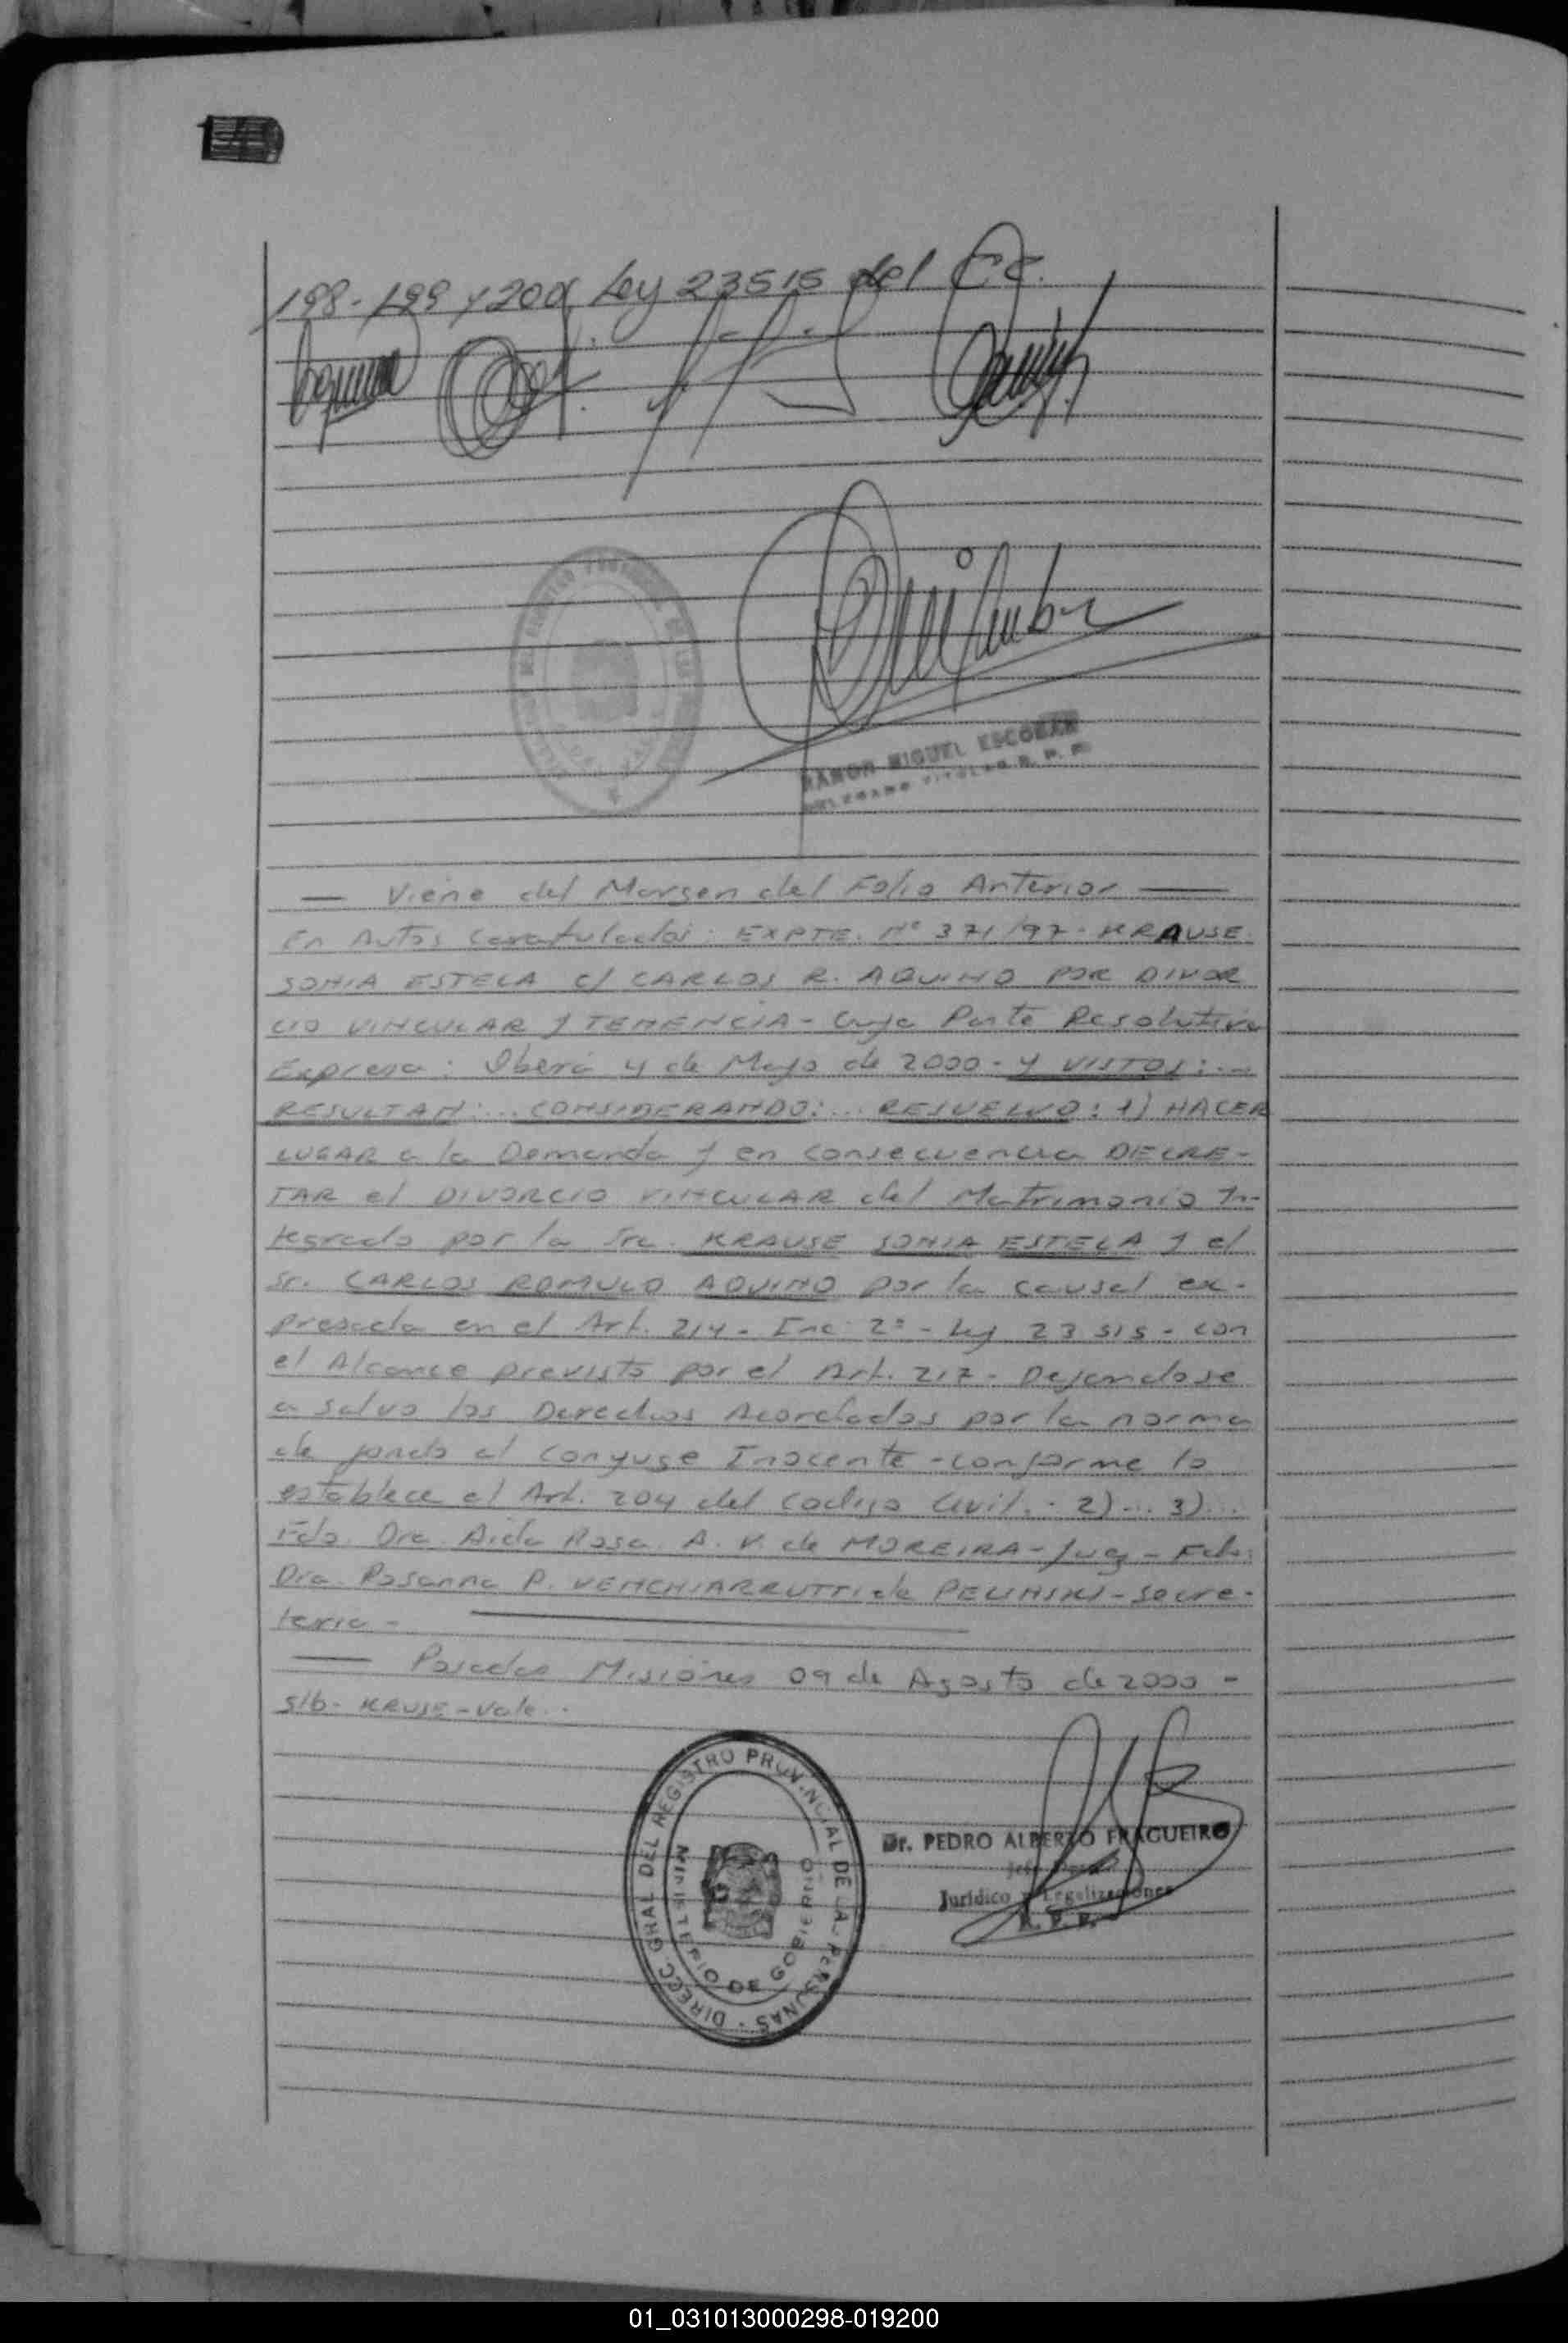 198-199 y 200 Ley 23515 del C.C.
RAMON MIGUEL ESCOBAR
— Viene del Margen del Folio Anterior —
En Autos Caratulados: EXPTE. Nº 371/97 - KRAUSE
SONIA ESTELA C/ CARLOS R. AQUINO POR DIVOR
CIO VINCULAR y TENENCIA - Cuya Parte Resolutiva
Expresa: Oberá 4 de Mayo de 2000 - Y VISTOS: ...
RESULTAN: ... CONSIDERANDO: ... RESUELVO: 1) HACER
LUGAR a la Demanda y en consecuencia DECRE-
TAR el DIVORCIO VINCULAR del Matrimonio In-
tegrado por la Sra. KRAUSE SONIA ESTELA y el
Sr. CARLOS ROMULO AQUINO por la causal ex-
presada en el Art. 214 - Inc 2º - Ley 23515 - con
el Alcance previsto por el Art. 217 - Dejandose
a salvo los Derechos Acordados por la norma
de fondo al Conyuge Inocente - conforme lo
establece el Art. 204 del Codigo Civil. - 2) ... 3) ...
Fdo. Dra. Aida Rosa A. V. de MOREIRA - Juez - Fdo:
Dra. Rosanna P. VENCHIARRUTTI de PELINSKI - Secre-
taria -
— Posadas Misiones 09 de Agosto de 2000 -
S/b - KRUSE - Vale. -
DIRECC. GRAL DEL REGISTRO PROVINCIAL DE LAS PERSONAS
MINISTERIO DE GOBIERNO
Dr. PEDRO ALBERTO FRAGUEIRO
Jurídico y Legalizaciones
R. P. P.
01_031013000298-019200